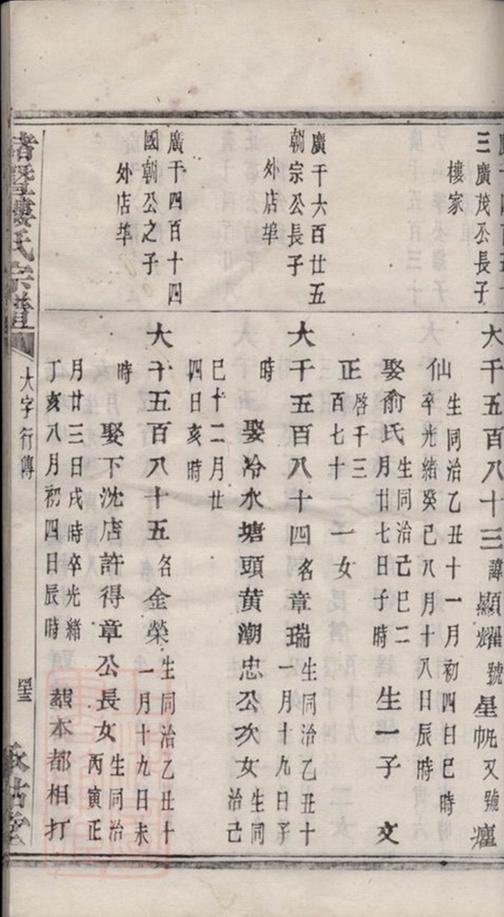 三廣茂公長子
樓家
大千五百八十三諱顯耀號星帆又號癯
仙生同治乙丑十一月初四日巳時
卒光緒癸巳八月十八日辰時
娶俞氏生同治己巳二
月廿七日子時
生一子 文
正啓千三
百七十
一女
廣千六百廿五
朝宗公長子
外店埠
大千五百八十四名章瑞生同治乙丑十
一月十九日子
時
娶冷水塘頭黄潮忠公次女生同
治己
巳十二月廿
四日亥時
廣千四百十四
國朝公之子
外店埠
大千五百八十五名金榮生同治乙丑十
一月十九日未
時
娶下沈店許得章公長女生同治
丙寅正
月廿三日戌時卒光緒
丁亥八月初四日辰時
塟本都相打
諸暨樓氏宗譜
大字行傳